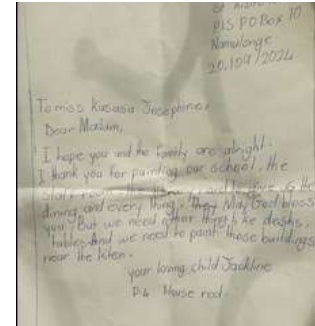 P/S P.O Box 10
Namulonge
20,109/2024
To miss Kusasu Josephine,
Dear Madam,
I hope you and the family are alright.
I thank you for painting our school, the
the
dining and every thing. They May God bless
you, But we need other things like desks,
tables And we need to paint those buildings
near the kiten.
your loving child Jackline
P.4 House red.